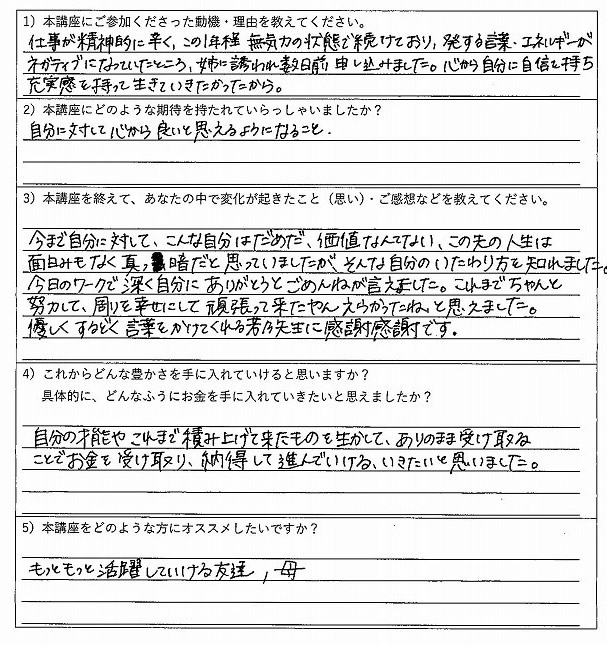 1）本講座にご参加くださった動機・理由を教えてください。
仕事が精神的に辛く、この1年程 無気力の状態で続けており、発する言葉・エネルギーが
ネガティブになっていたところ、姉に誘われ数日前 申し込みました。心から自分に自信を持ち
充実感を持って生きていきたかったから。
2）本講座にどのような期待を持たれていらっしゃいましたか？
自分に対して心から良いと思えるようになること.
3）本講座を終えて、あなたの中で変化が起きたこと（思い）・ご感想などを教えてください。
今まで自分に対して、こんな自分はだめだ、価値なんてない、この先の人生は
面白みもなく真っ暗だと思っていましたが、そんな自分のいたわり方を知れました。
今日のワークで深く自分にありがとうとごめんねが言えました。これまでちゃんと
努力して、周りを幸せにして頑張って来たやん えらかったね、と思えました。
優しくするどく言葉をかけてくれる若 先生に感謝感謝です。
4）これからどんな豊かさを手に入れていけると思いますか？
具体的に、どんなふうにお金を手に入れていきたいと思えましたか？
自分の才能やこれまで積み上げて来たものを生かして、ありのまま受け取る
ことでお金を受け取り、納得して進んでいける、いきたいと思いました。
5）本講座をどのような方にオススメしたいですか？
もっともっと活躍していける友達，母